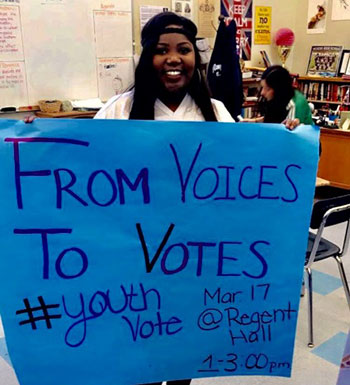 FROM VOICES
TO VOTES
#youth
Vote
Mar 17
@Regent
Hall
1-3:00pm